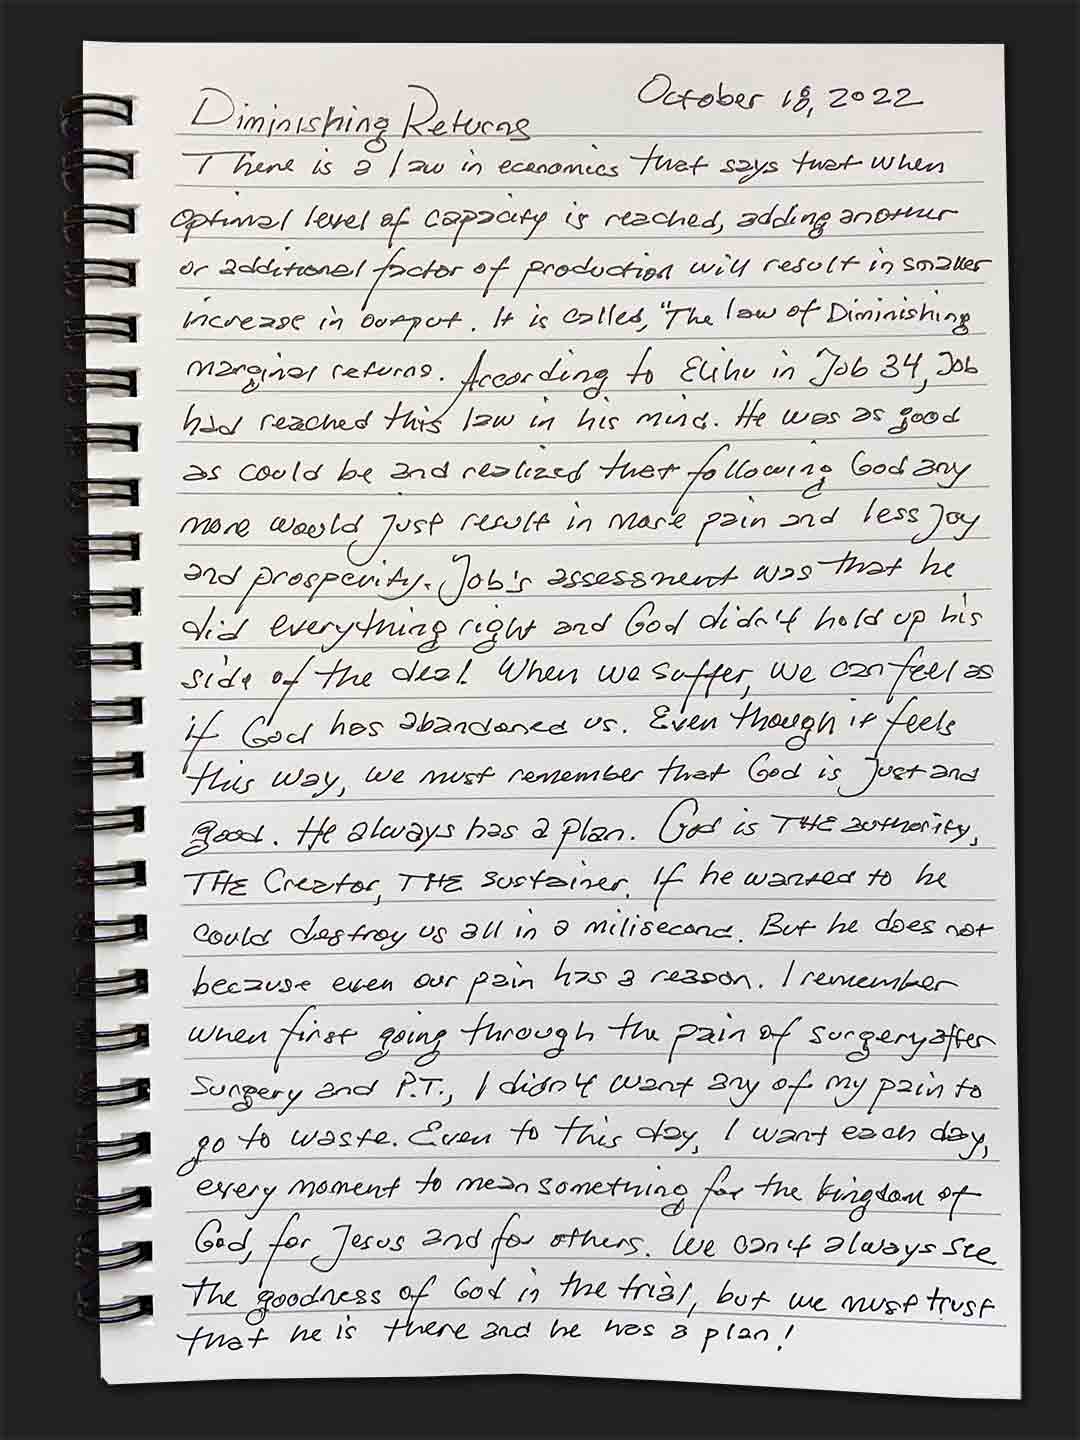 October 18, 2022
Diminishing Returns
There is a law in economics that says that when
optimal level of capacity is reached, adding another
or additional factor of production will result in smaller
increase in output. It is called, "The law of Diminishing
marginal returns. According to Elihu in Job 34, Job
had reached this law in his mind. He was as good
as could be and realized that following God any
more would just result in more pain and less joy
and prosperity. Job's assessment was that he
did everything right and God didn't hold up his
side of the deal. When we suffer, we can feel as
if God has abandoned us. Even though it feels
this way, we must remember that God is just and
good. He always has a plan. God is THE authority,
THE Creator, THE sustainer. If he wanted to he
could destroy us all in a milisecond. But he does not
because even our pain has a reason. I remember
when first going through the pain of surgery after
surgery and P.T., I didn't want any of my pain to
go to waste. Even to this day, I want each day,
every moment to mean something for the kingdom of
God, for Jesus and for others. We can't always see
the goodness of God in the trial, but we must trust
that he is there and he has a plan!